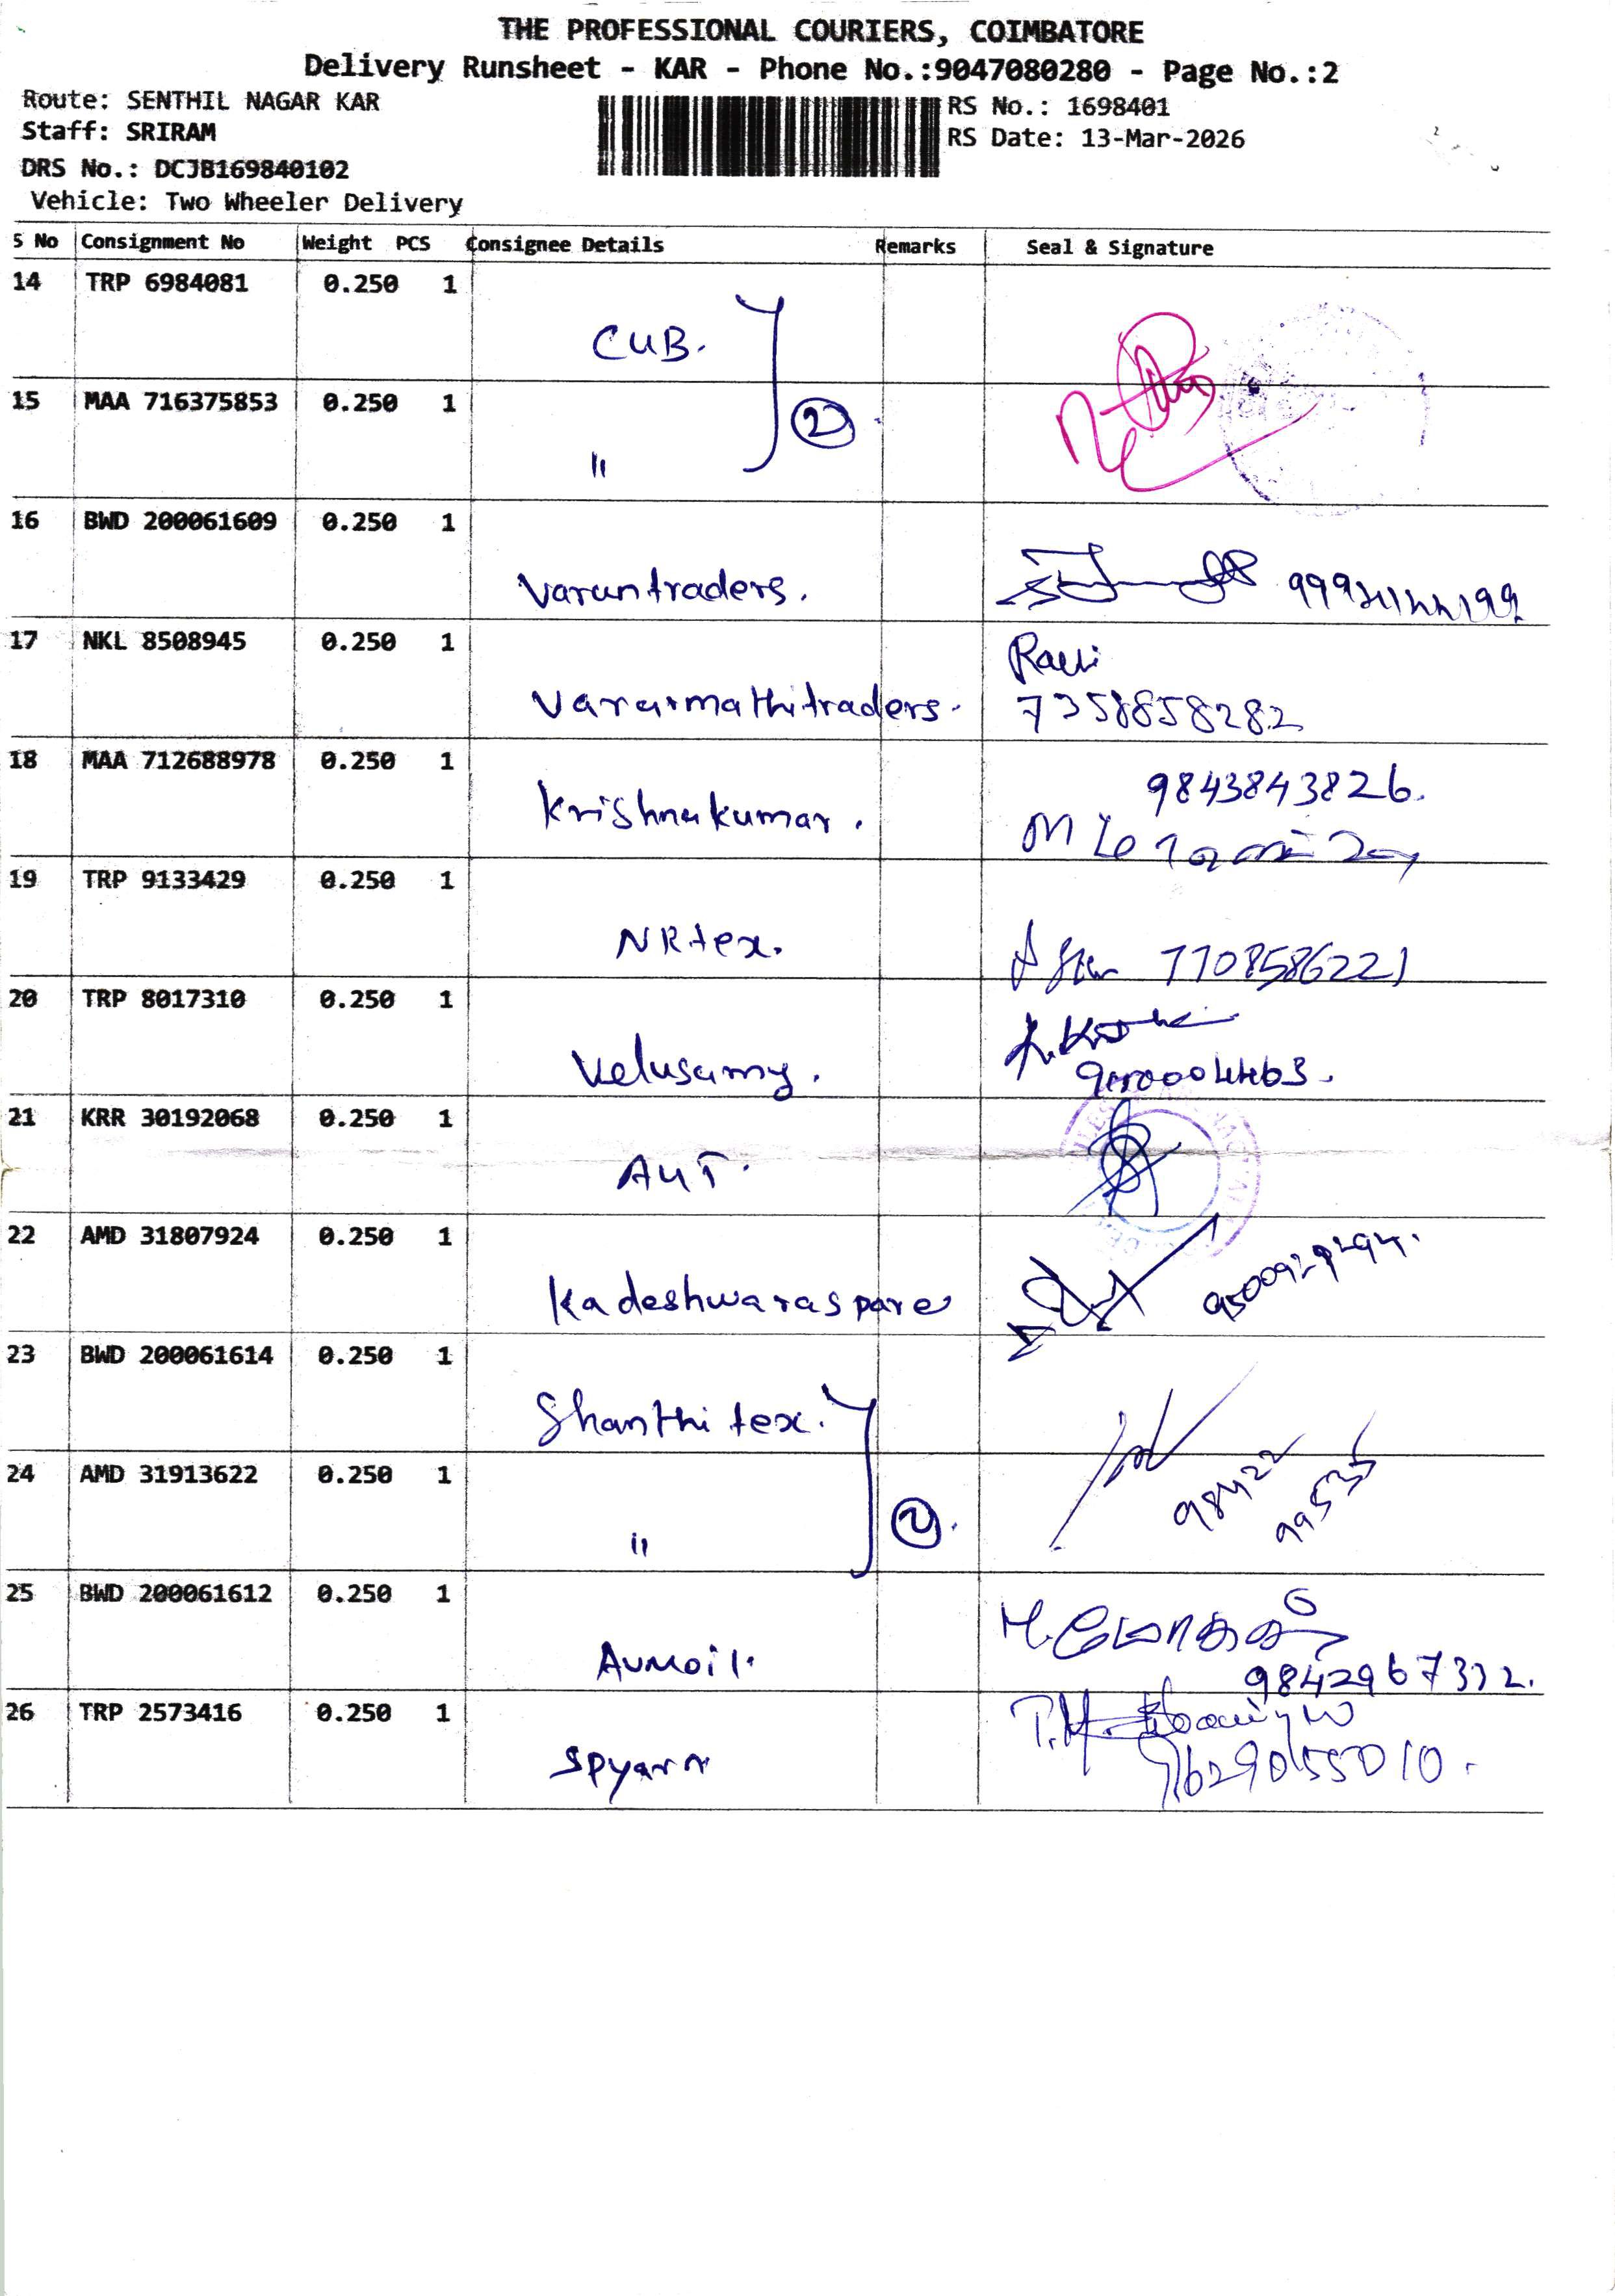 THE PROFESSIONAL COURIERS, COIMBATORE
Delivery Runsheet - KAR - Phone No.:9047080280 - Page No.:2
Route: SENTHIL NAGAR KAR
RS No.: 1698401
Staff: SRIRAM
RS Date: 13-Mar-2026
DRS No.: DCJB169840102
Vehicle: Two Wheeler Delivery
S No Consignment No Weight PCS Consignee Details Remarks Seal & Signature
14 TRP 6984081 0.250 1
CUB.
15 MAA 716375853 0.250 1
" 2
16 BWD 200061609 0.250 1
Varuntraders.
17 NKL 8508945 0.250 1
Ravi
Varaimathitraders. 7358858282
18 MAA 712688978 0.250 1
Krishnakumar. 9843843826.
19 TRP 9133429 0.250 1
NRtex. 7708586221
20 TRP 8017310 0.250 1
Velusamy.
21 KRR 30192068 0.250 1
AUT.
22 AMD 31807924 0.250 1
Kadeshwaraspare
23 BWD 200061614 0.250 1
Shanthi tex.
24 AMD 31913622 0.250 1
98422
99535
" 2
25 BWD 200061612 0.250 1
AVMoil.
9842967332.
26 TRP 2573416 0.250 1
Spyarn 9629055010.